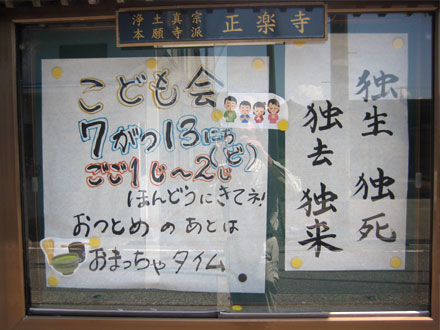 浄土真宗
本願寺派
正楽寺
こども会
7がつ13にち(ど)
ごご1じ〜2じ
ほんどうにきてネ!
おつとめのあとは
おまっちゃタイム
独生 独死
独去 独来